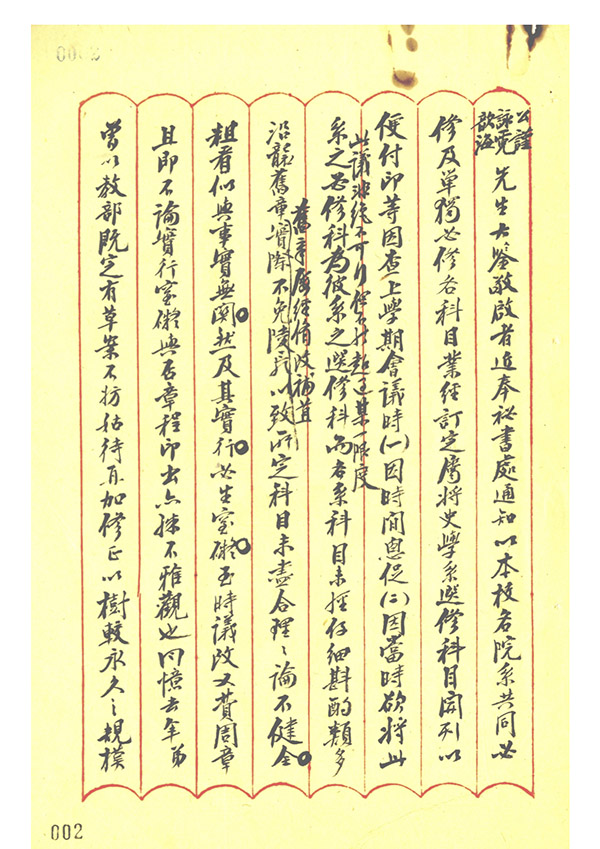 0002
公謹
詠霓
歆海
先生大鑒敬啟者近奉祕書處通知以本校各院系共同必
修及單獨必修各科目業經訂定屬將史學系選修科目開列以
便付印等因查上學期會議時(一)因時間悤促(二)因當時欲將此
系之必修科為彼系之選修科而各系科目未經仔細斟酌類多
沿襲舊章實際不免陵亂以致所定科目未盡合理之論不健全
舊章屢經修改補苴
粗看似與事實無關然及其實行必生窒礙至時議改又費周章
且即不論實行窒礙與否章程印出亦殊不雅觀也回憶去年弟
曾以教部既定有草案不妨姑待再加修正以樹較永久之規模
002